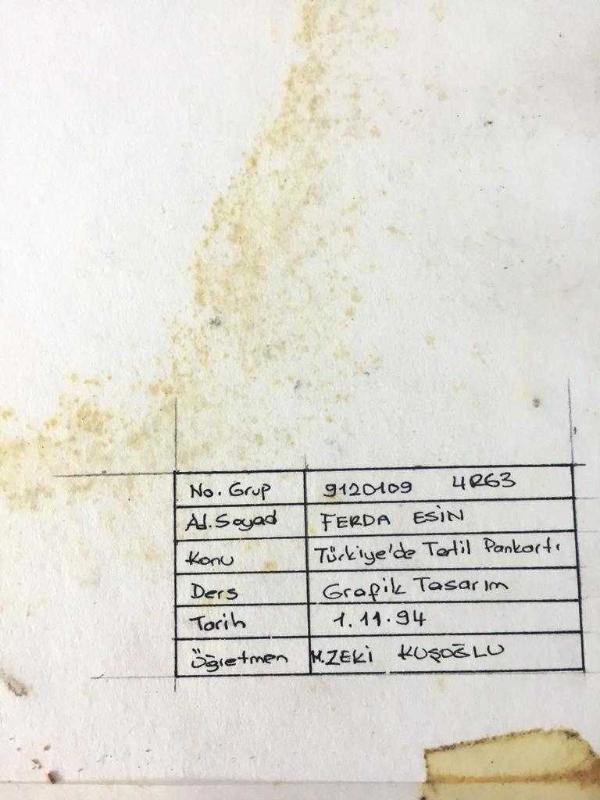 No. Grup 9120109 4R63
Ad. Soyad FERDA ESİN
Konu Türkiye'de Tatil Pankartı
Ders Grafik Tasarım
Tarih 1.11.94
Öğretmen M.ZEKİ KUŞOĞLU